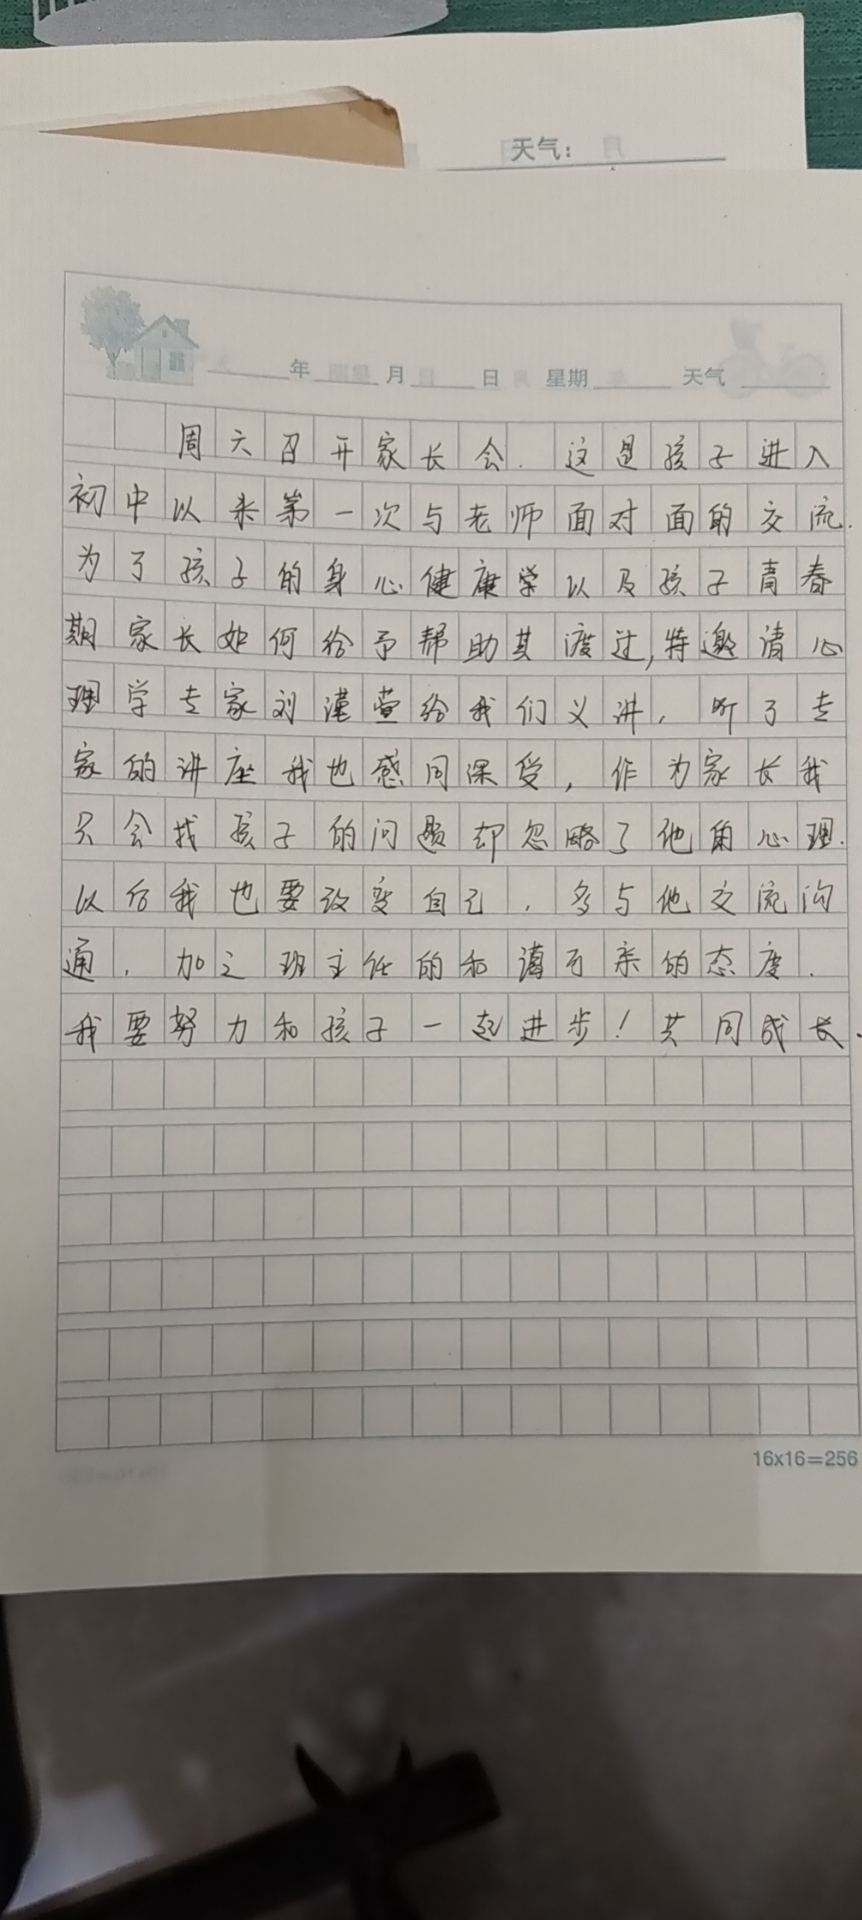 天气：
年 月 日 星期 天气
周六召开家长会．这是孩子进入
初中以来第一次与老师面对面的交流．
为了孩子的身心健康学以及孩子青春
期家长如何给予帮助其渡过,特邀请心
理学专家刘漌萱给我们义讲，听了专
家的讲座我也感同深受，作为家长我
只会找孩子的问题却忽略了他的心理．
以后我也要改变自己，多与他交流沟
通，加之班主任的和谒可亲的态度．
我要努力和孩子一起进步！共同成长．
16x16=256